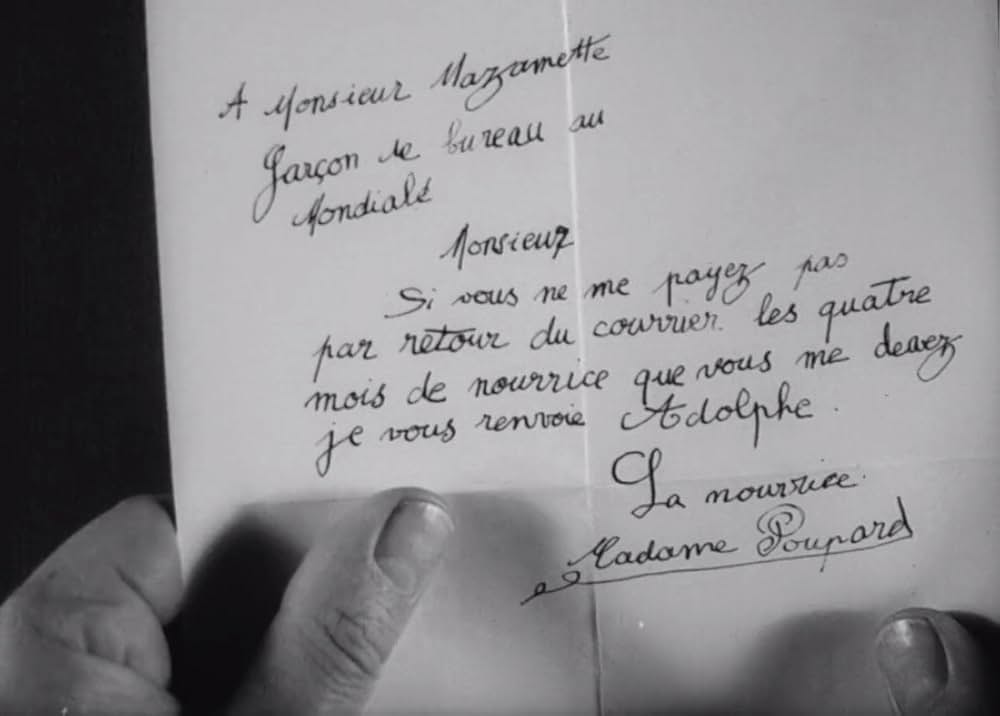 A Monsieur Mazamette
Garçon de bureau au
Mondial
Monsieur
Si vous ne me payez pas
par retour du courrier les quatre
mois de nourrice que vous me devez
je vous renvoie Adolphe.
La nourrice.
Madame Poupard